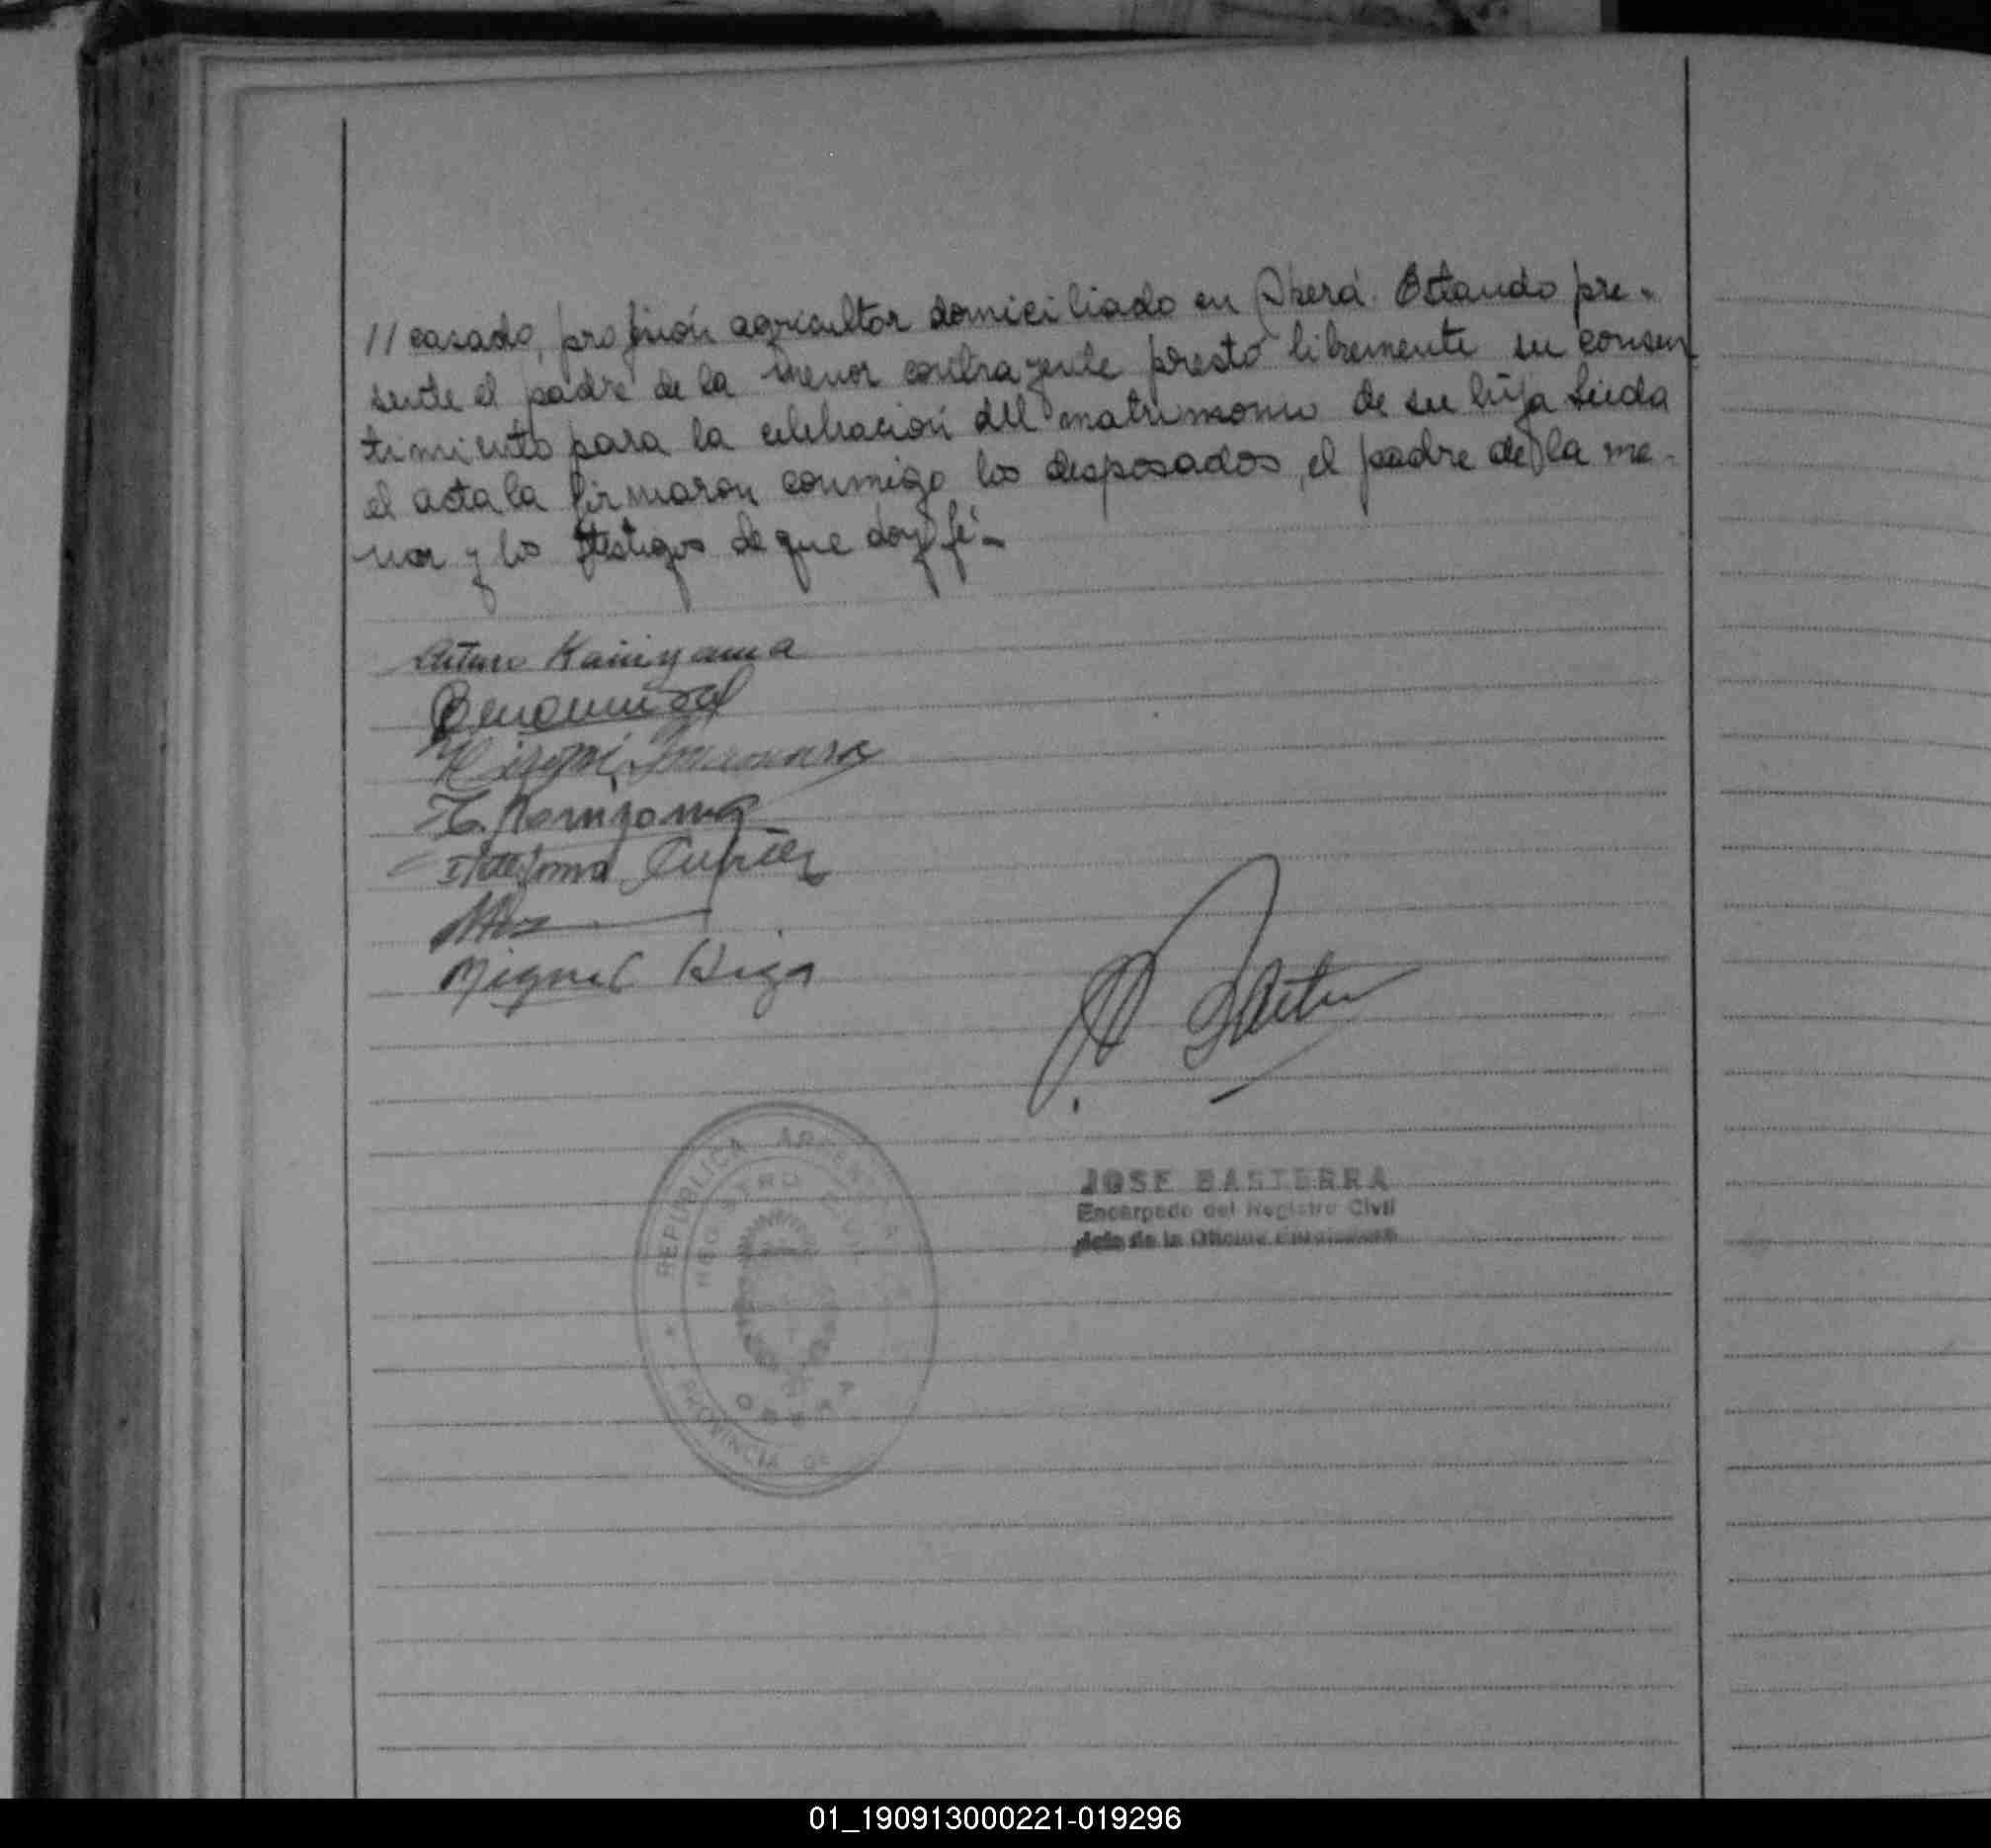 // casado, profisión agricultor domiciliado en Oberá. Estando pre-
sente el padre de la menor contrayente prestó libremente su consen
timiento para la celebración del matrimonio de su hija Leída
el acta la firmaron conmigo los desposados, el padre de la me-
nor y los testigos de que doy fé.-
Arturo Kamiyama
H. Kamiyama
Miguel Higa
JOSE BASTERRA
Encargado del Registro Civil
Jefe de la Oficina
REPUBLICA ARGENTINA
REGISTRO CIVIL
OBERA
PROVINCIA DE
01_190913000221-019296